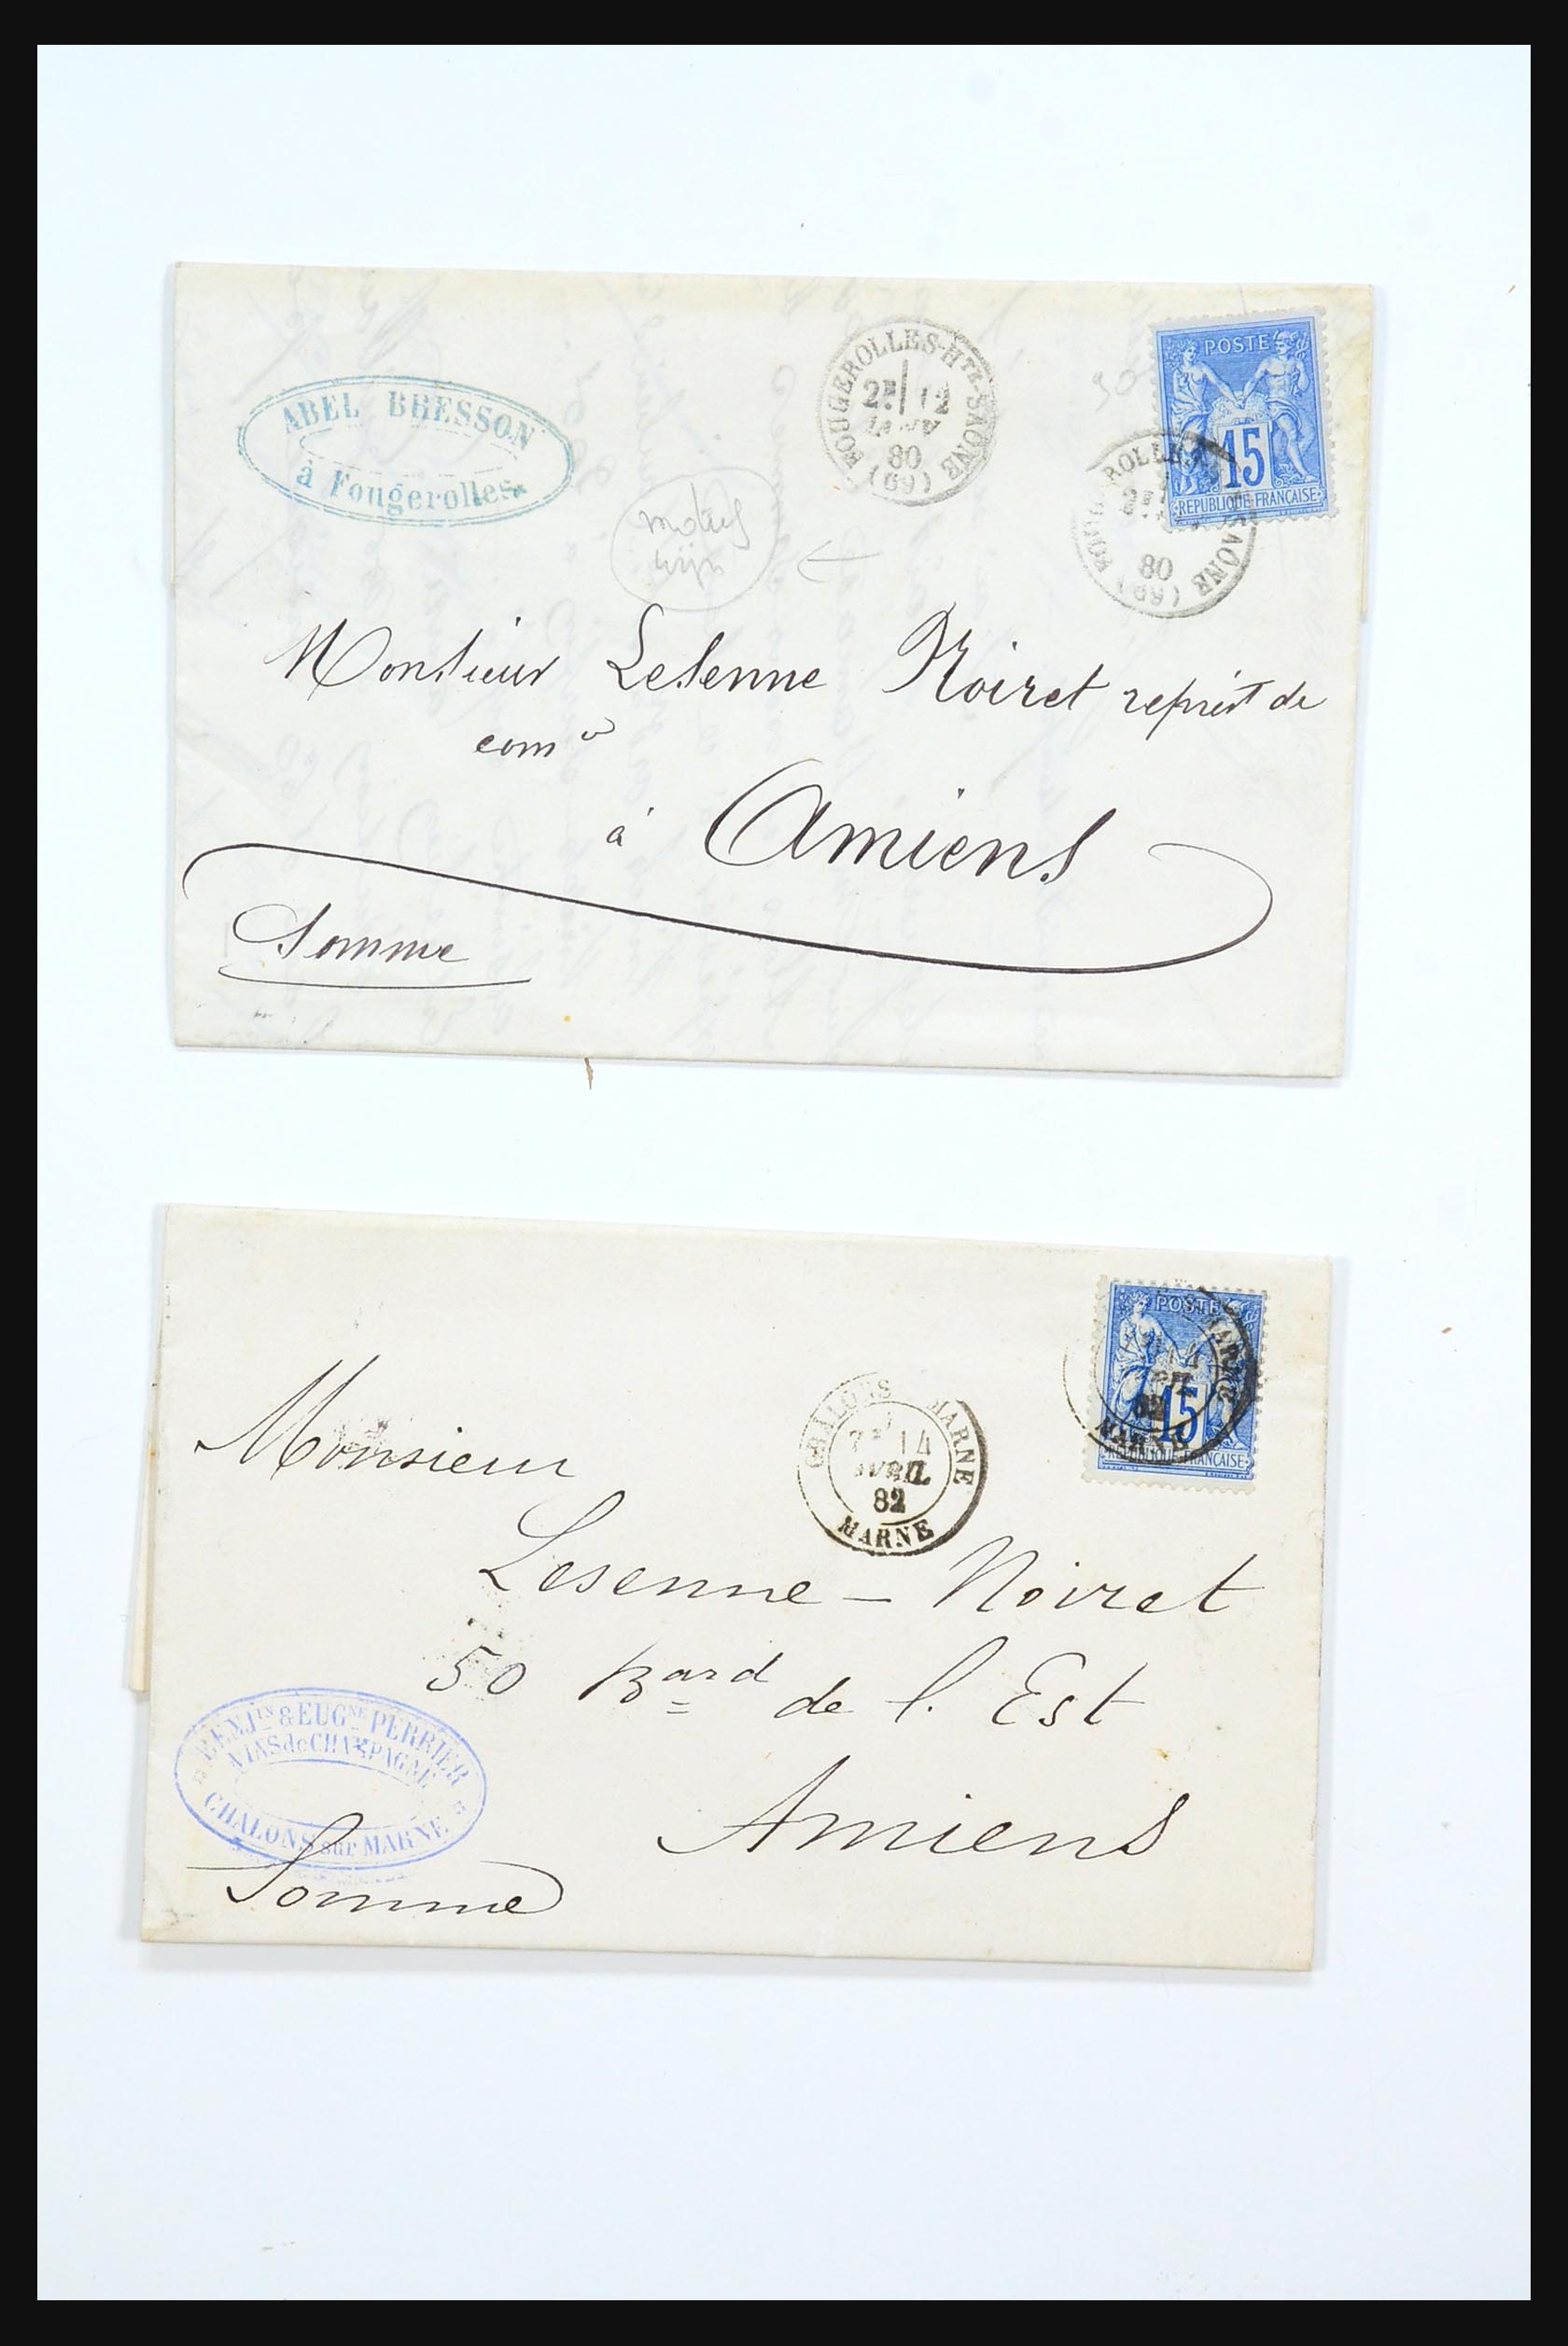 ABEL BRESSON
à Fougerolles
FOUGEROLLES-HTE-SAÔNE
2E 12
JANV
80
(69)
POSTE
15
REPUBLIQUE FRANCAISE
80
Monsieur Lesenne Noiret reprêst de
com
à Amiens
Somme
POSTE
15
REPUBLIQUE FRANCAISE
CHALONS MARNE
14
AVRIL
82
MARNE
Monsieur
Lesenne - Noiret
50 Bard de l. Est
Amiens
Somme
BENJIN & EUGNE PERRIER
VINS de CHAMPAGNE
CHALONS sur MARNE